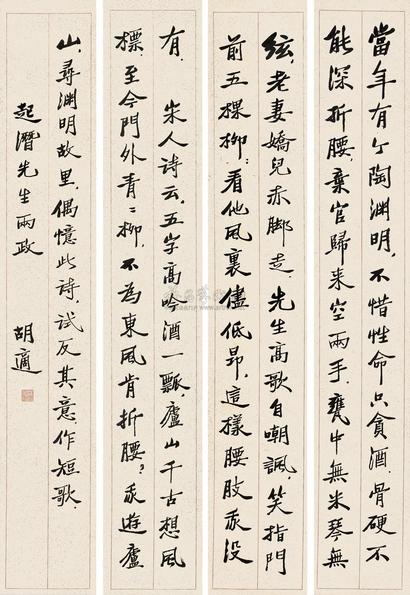 當年有个陶淵明，不惜性命只貪酒．骨硬不
能深折腰，棄官歸来空兩手．甕中無米琴無
絃，老妻嬌兒赤脚走．先生高歌自嘲諷，笑指門
前五棵柳：看他風裏儘低昂，這樣腰肢我没
有． 宋人诗云，五字高吟酒一瓢，廬山千古想風
標．至今門外青〻柳，不為東風肯折腰？我遊廬
山，尋淵明故里，偶憶此詩，試反其意，作短歌．
起潛先生兩政
胡適